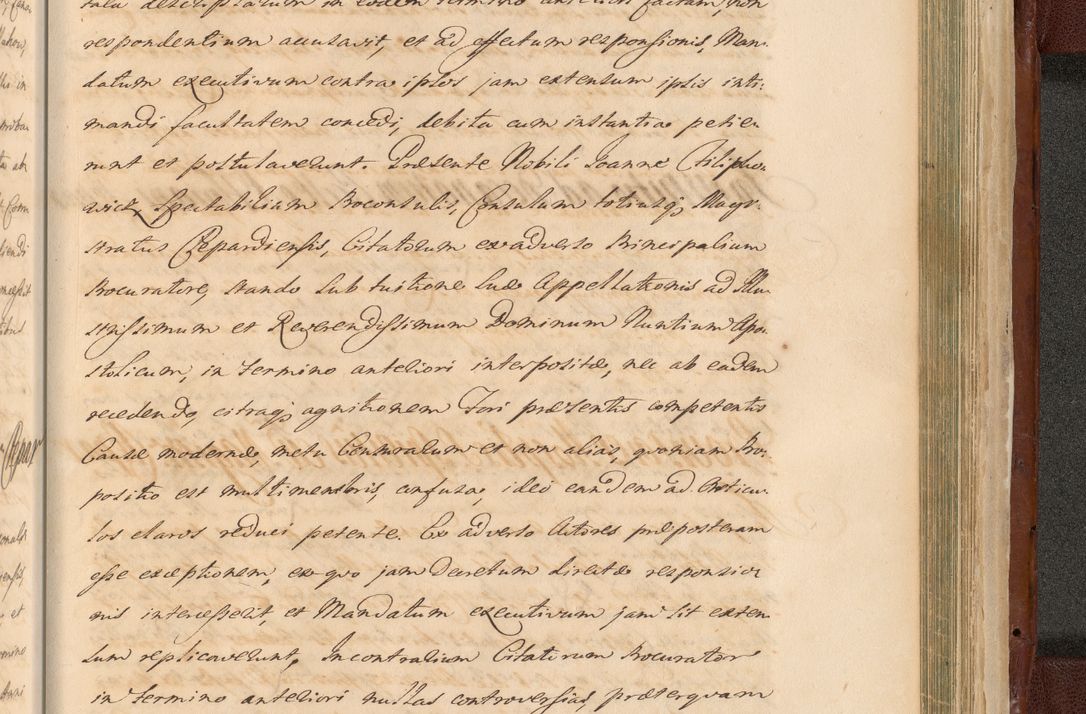 respondentium accusavit, et ad effectum responsionis, Man-
datum executivum contra ipsos jam extensum ipsis inti-
mandi facultatem concedi, debita cum instantia petie-
runt et postulaverunt. Presente Nobili Joanne Chlipho-
wicz, Spectabilium Proconsulis, Consulum totiusq; Magi-
stratus Clepardiensis, Citatorum ex adverso Principalium
Procuratore, stando sub tuitione suæ Appellationis ad Illu-
strissimum et Reverendissimum Dominum Nuntium Apo-
stolicum, in termino anteriori interpositæ, nec ab eadem
recedendo, citraq; agnitionem Fori præsentis competentis
Causæ modernæ, metu Censurarum et non alias, quoniam Pro-
positio est multimembris, confusa, ideo eandem ad Articu-
los claros reduci petente. Ex adverso Actores præposteram
esse exceptionem, ex quo jam Decretum directæ responsio-
nis intercesserit, et Mandatum executivum jam sit exten-
sum replicaverunt. In contrarium Citatorum Procurator
in termino anteriori nullas controversias, præterquam